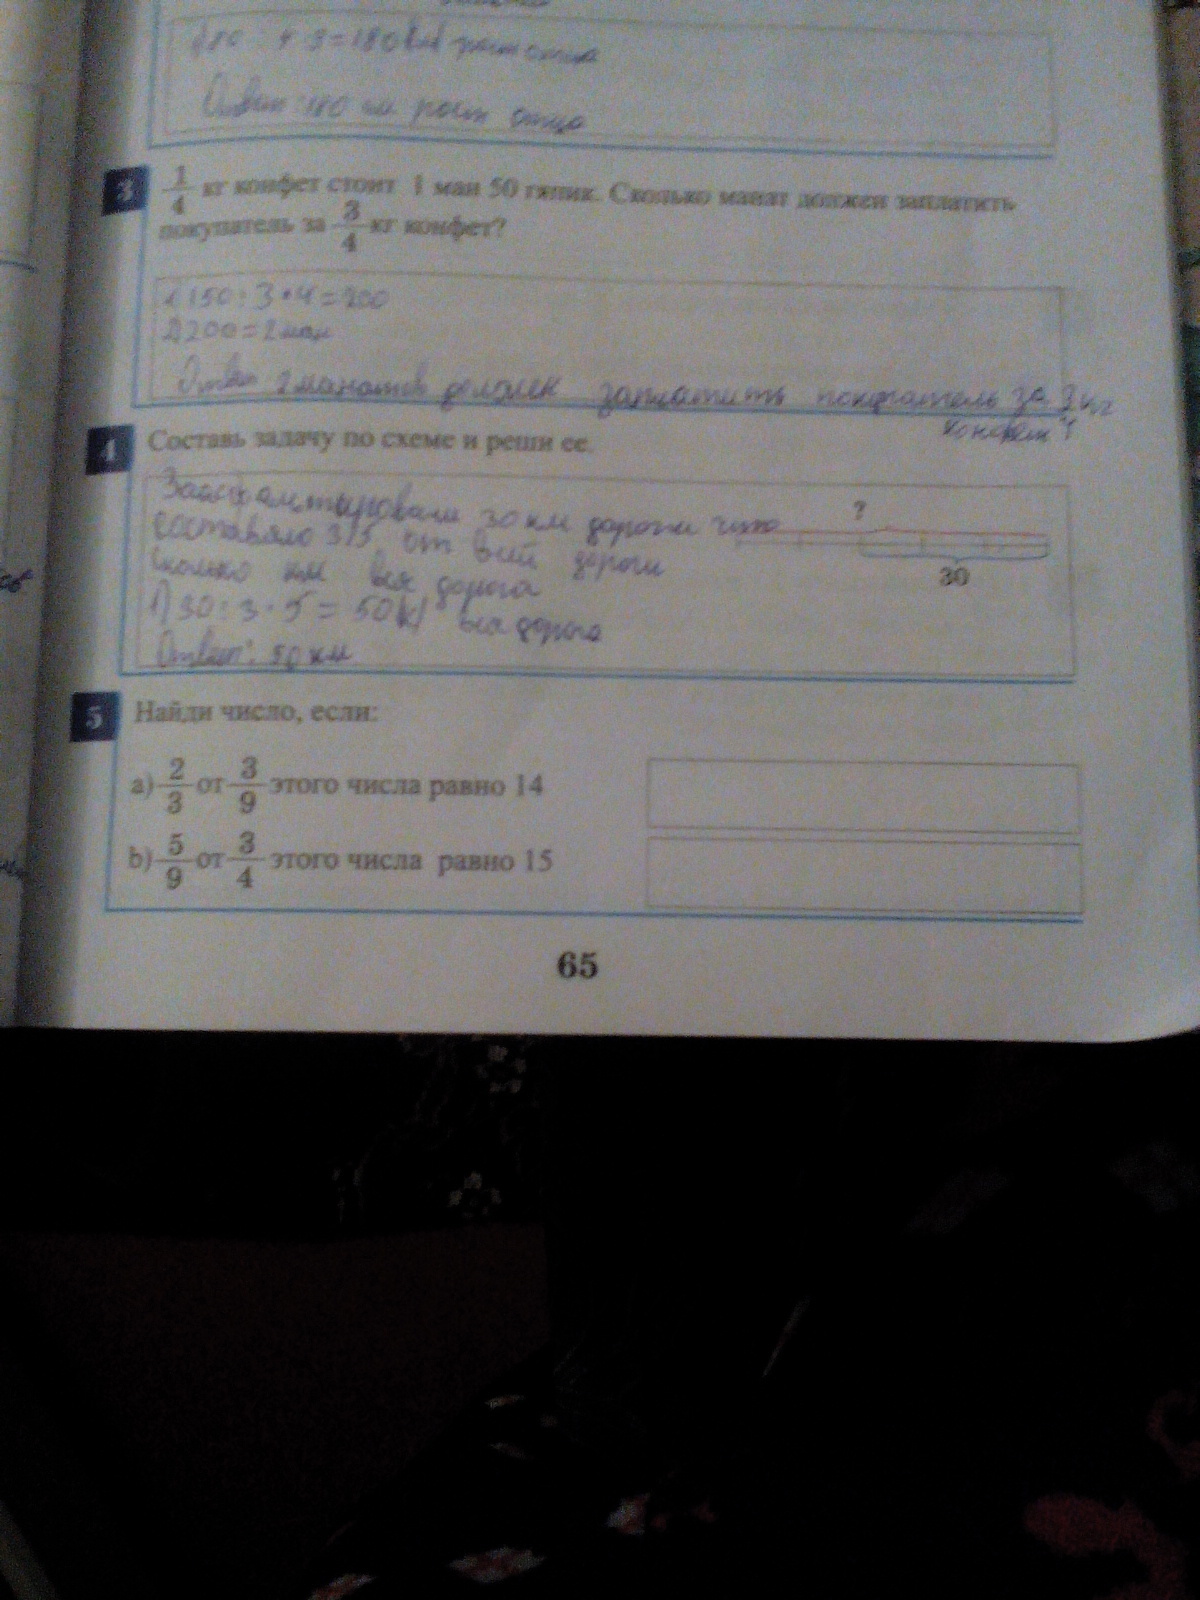 4 · 3 = 180
Ответ: 180 см рост отца
3
1/4 кг конфет стоит 1 ман 50 гяпик. Сколько манат должен заплатить
покупатель за 3/4 кг конфет?
1) 150 : 3 · 4 = 200
2) 200 = 2 ман
Ответ 2 манатов должен заплатить покупатель за 3 кг
4
4
Составь задачу по схеме и реши ее.
Заасфальтировали 30 км дороги что
составяло 3/5 от всей дороги
?
сколько км вся дорога
30
1) 30 : 3 · 5 = 50 вся дорога
Ответ: 50 км
5
Найди число, если:
a) 2/3 от 3/9 этого числа равно 14
b) 5/9 от 3/4 этого числа равно 15
65